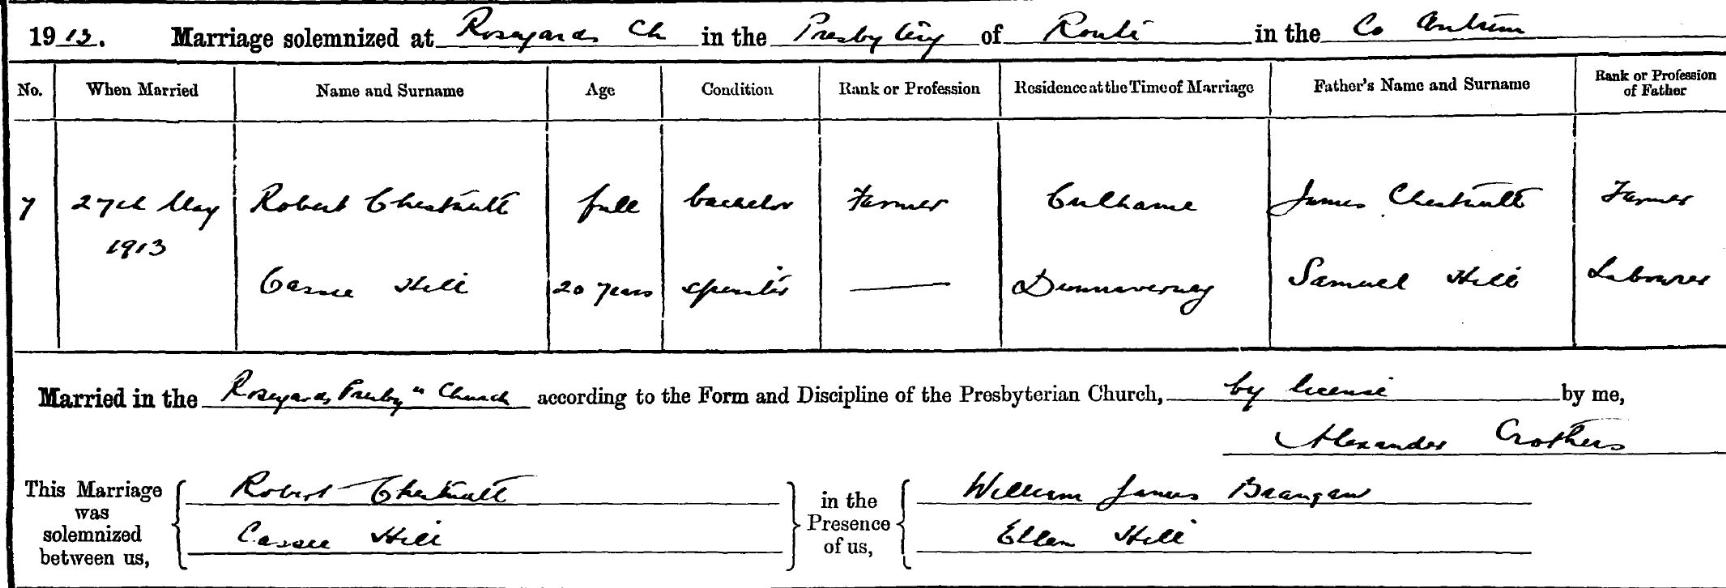 1913. Marriage solemnized at Roseyards Ch in the Presbytery of Route in the Co Antrim
No. When Married Name and Surname Age Condition Rank or Profession Residence at the Time of Marriage Father's Name and Surname Rank or Profession of Father
7 27th May 1913 Robert Chestnutt full bachelor Farmer Culhame James Chestnutt Farmer
Cassie Hill 20 years spinster — Dunnaverney Samuel Hill Labourer
Married in the Roseyards Presbyn Church according to the Form and Discipline of the Presbyterian Church, by license by me,
Alexander Crothers
This Marriage was solemnized between us,
Robert Chestnutt
Cassie Hill
in the Presence of us,
William James
Ellen Hill